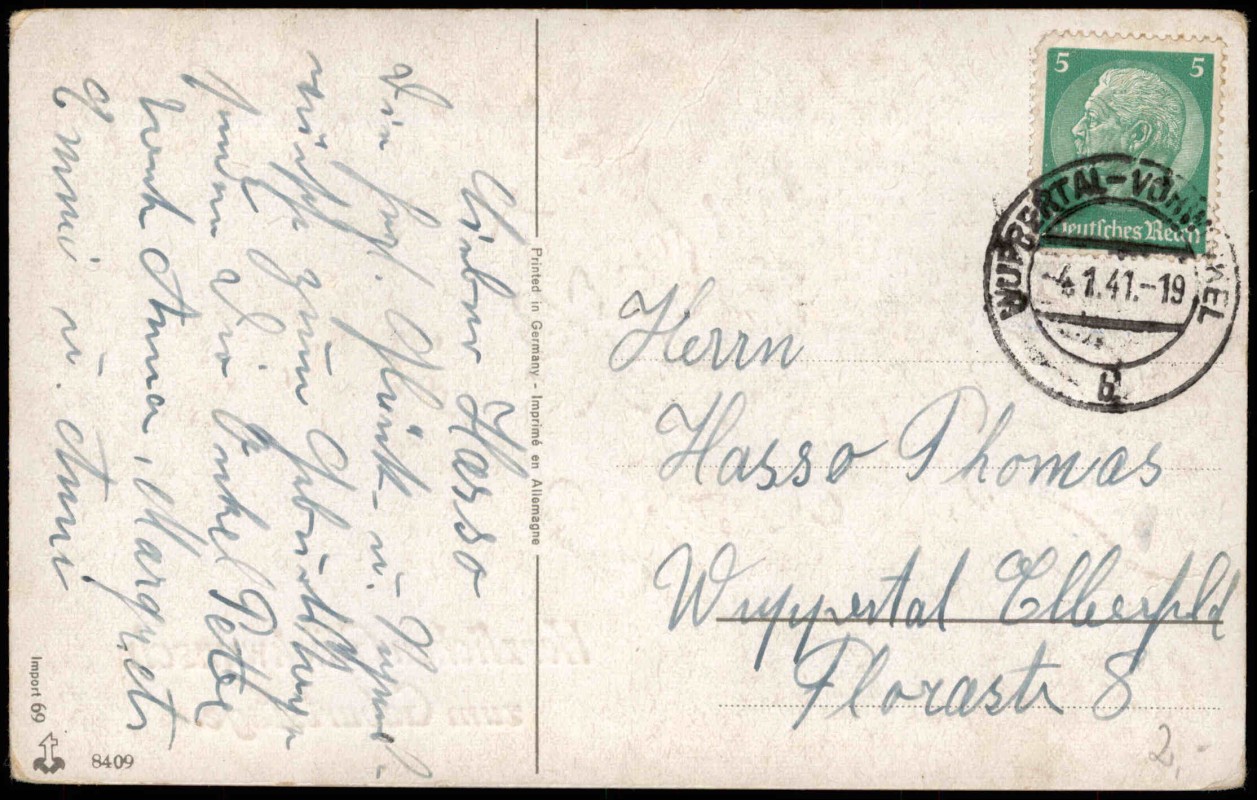 Lieber Hasso
Die herzl. Glück- u. Segens-
wünsche zum Geburtstage
senden Dir Onkel Peter
Tante Anna, Margret,
Emmi u. Anni
Printed in Germany - Imprimé en Allemagne
Import 69
8409
5 5
Deutsches Reich
WUPPERTAL-VOHWINKEL
-4.1.41.-19
Herrn
Hasso Thomas
Wuppertal Elberfeld
Florastr 8
2,-
Herzlichen
zum Geburtstage